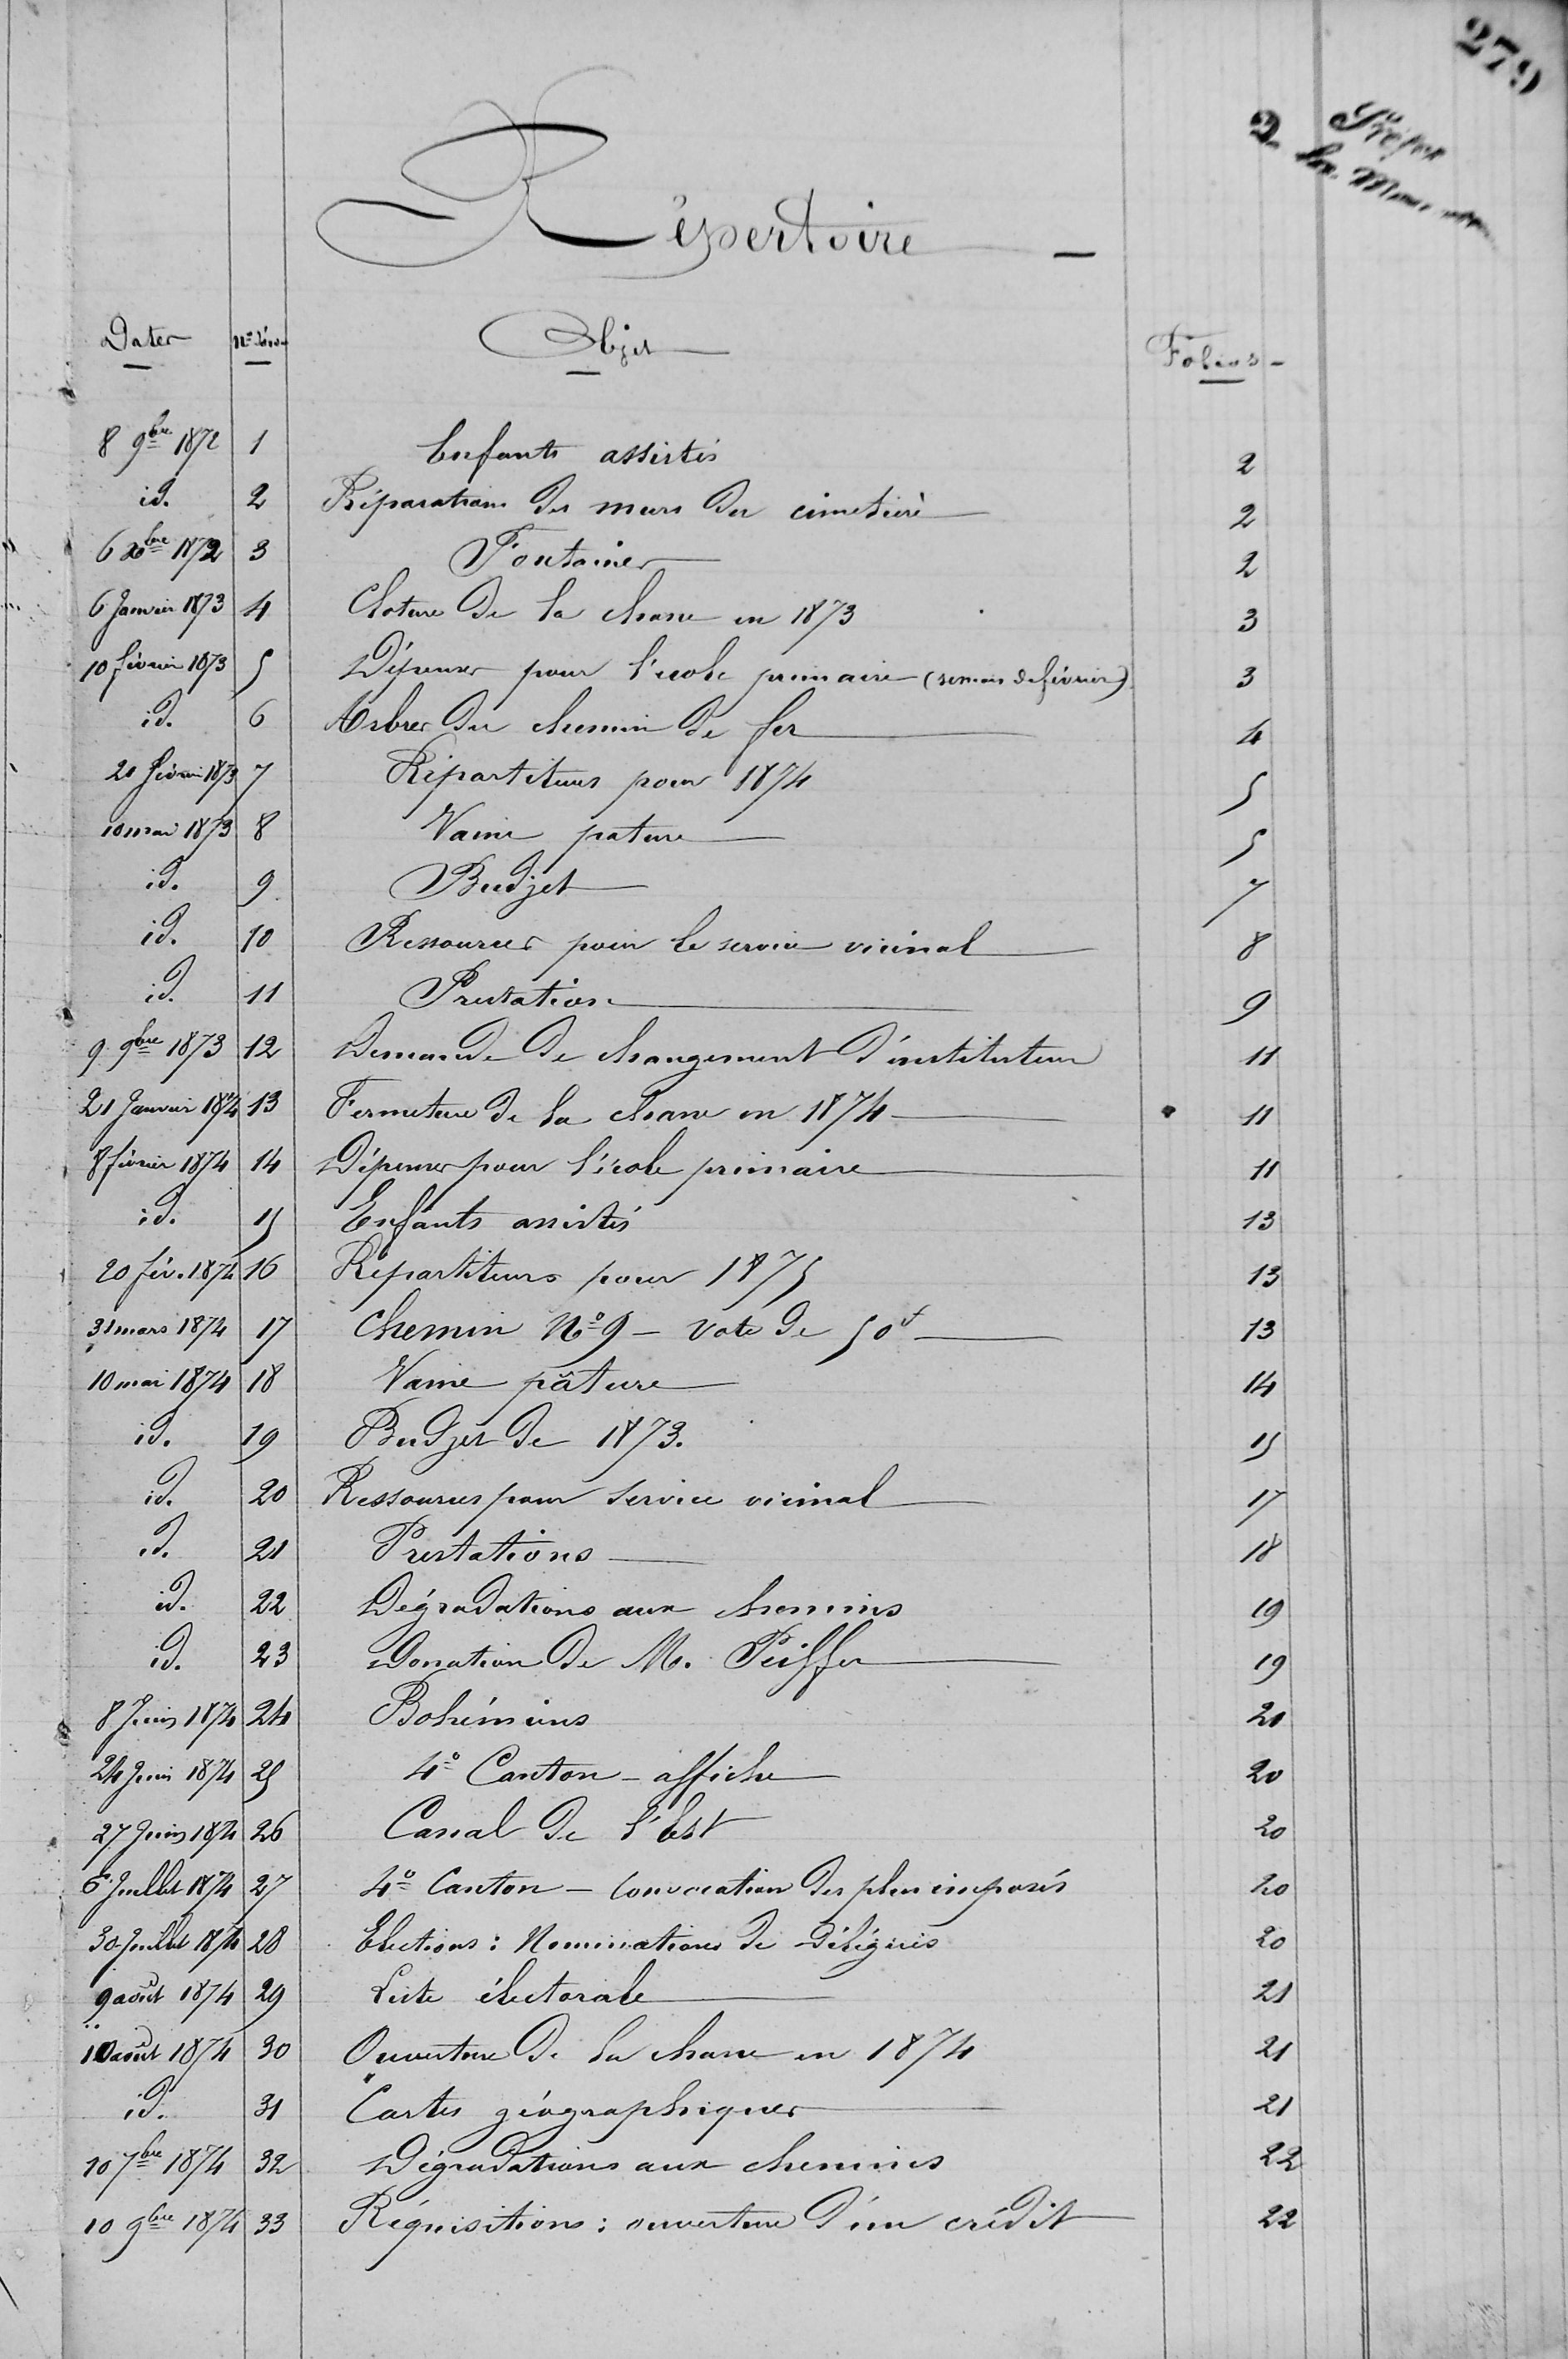 279
Répertoire
Dates N° Objet Folios
8 9bre 1872 1 Enfants assistés 2
id. 2 Réparations des murs du cimetière 2
6 Xbre 1872 3 Fontaines 2
6 Janvier 1873 4 Cloture de la chasse en 1873 3
10 février 1873 5 Dépenses pour l'école primaire (sension de février) 3
id. 6 Arbres du chemin de fer 4
21 février 1873 7 Répartiteurs pour 1874 5
10 mai 1873 8 Vaine pature 5
id. 9 Budjet 7
id. 10 Ressources pour le service vicinal 8
id. 11 Prestation 9
9 9bre 1873 12 Demande de changement d'instituteur 11
21 Janvier 1874 13 Fermeture de la chasse en 1874 11
8 février 1874 14 Dépenses pour l'école primaire 11
id. 15 Enfants assistés 13
20 fév. 1874 16 Répartiteurs pour 1875 13
31 mars 1874 17 Chemin N° 9 - vote de 50f 13
10 mai 1874 18 Vaine pâture 14
id. 19 Budjet de 1873. 15
id. 20 Ressources pour service vicinal 17
id. 21 Prestations 18
id. 22 Dégradations aux chemins 19
id. 23 Donation de M. Peiffer 19
8 Juin 1874 24 Bohémiens 20
24 Juin 1874 25 4° Canton - affiche 20
27 Juin 1874 26 Canal de l'Est 20
6 Juillet 1874 27 4° Canton - Convocation des plus imposés 20
30 Juillet 1874 28 Elections : Nominations de délégués 20
9 août 1874 29 Liste électorale 21
10 août 1874 30 Ouverture de la chasse en 1874 21
id. 31 Cartes géographiques 21
10 7bre 1874 32 Dégradations aux chemins 22
10 9bre 1874 33 Réquisitions : ouverture d'un crédit 22